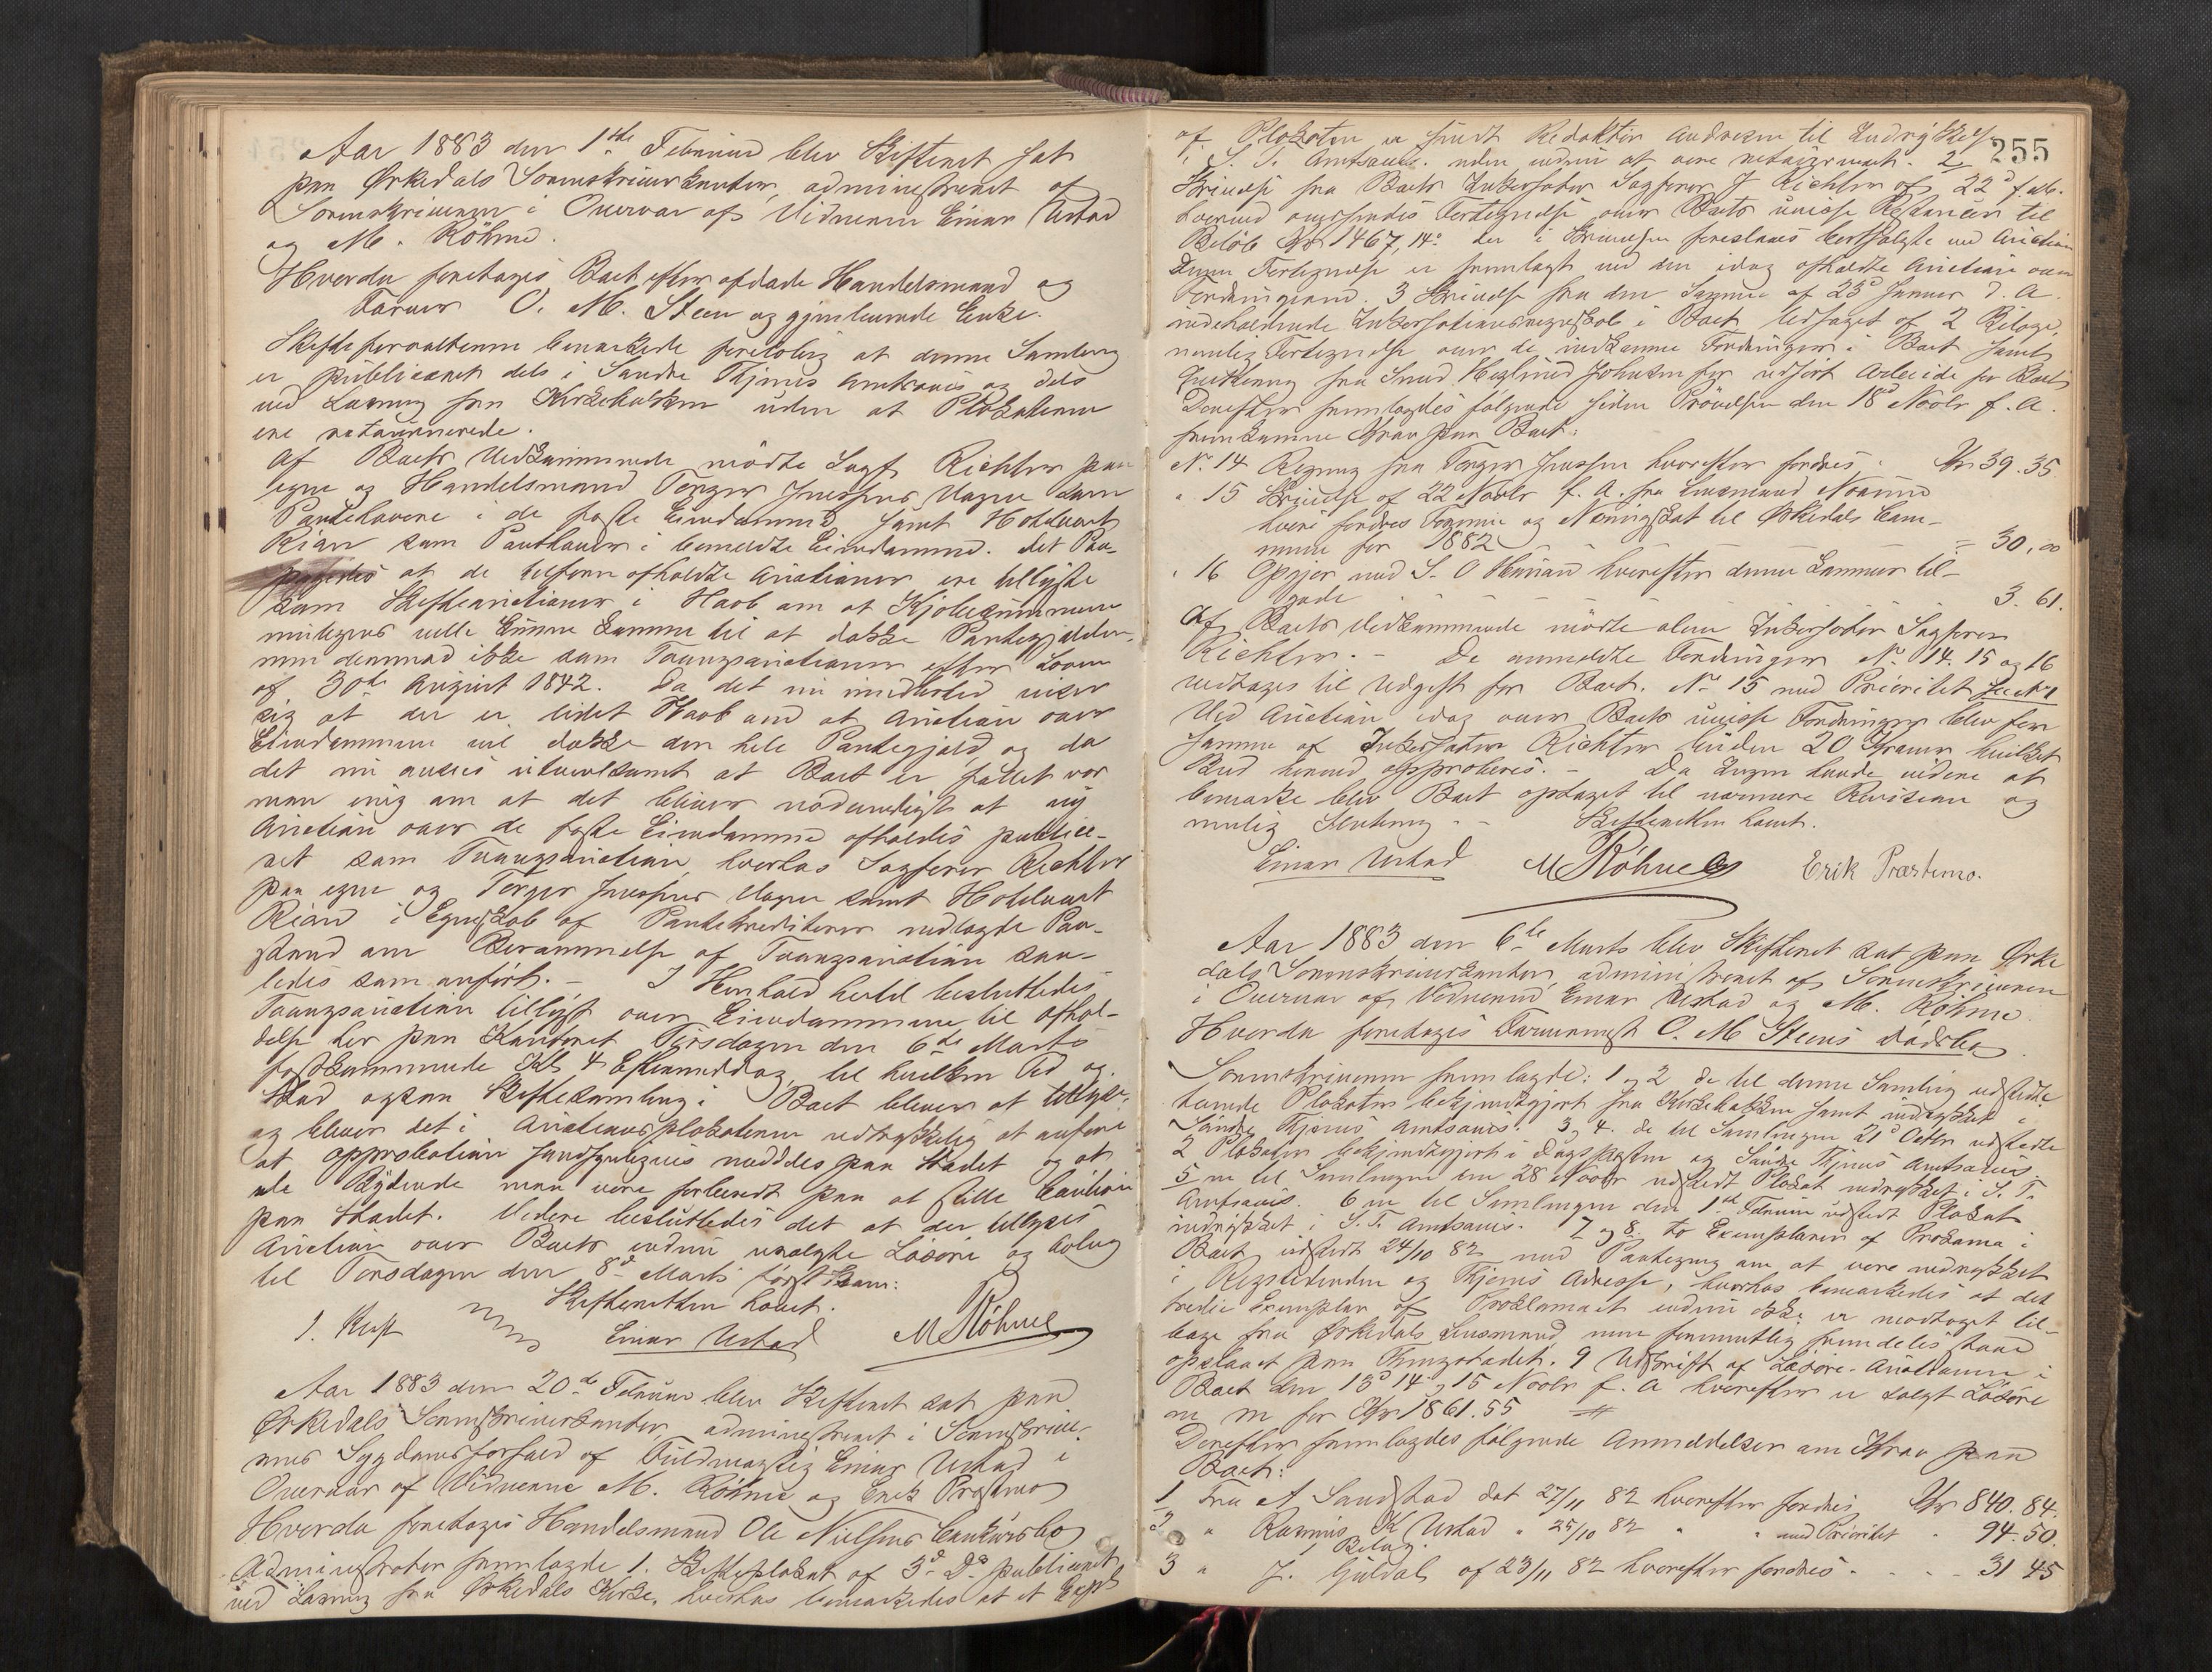 Aar 1883 den 1ste Februar blev Skifteret sat
paa Ørkedals Sorenskriverkontor, administreret af
Sorenskriveren i Overvær af Vidnerne Einar Ustad
og M. Röhme.
Hvorda foretoges Boet efter afdøde Handelsmand og
Farver O. M. Steen og gjenlevende Enke.
Skifteforvalteren bemærkede foreløbig at denne Samling
er publiceret dels i Søndre Thjems Amtsavis og dels
ved Læsning fra Kirkebakken uden at Plakaterne
ere retournerede.
Af Boets Vedkommende mødte Sagf. Richter paa
egne og Handelsmand Torger Jenssens Vegne som
Panthavere i de faste Eiendomme samt Hohlvart
Rian som Panthaver i bemeldte Eiendomme. Det Paa-
pegedes at de tilforn afholdte Auctioner ere tillyste
som Skifteauctioner i Haab om at Kjøbesummene
muligens vilde kunne komme til at dække Pantegjælden,
men dermed ikke som Tvangsauctioner efter Loven
af 30te August 1842. Da det nu imidlertid viser
sig at der er lidet Haab om at Auction over
Eiendommene vil dække den hele Pantegjæld, og da
det nu ansees utvivlsomt at Boet er fallit var
man enig om at det bliver nødvendigt at ny
Auction over de faste Eiendomme afholdes public-
ret som Tvangsauction, hvorhos Sagfører Richter
paa egne og Torger Jenssens Vegne samt Hohlvart
Rian i Egenskab af Pantekreditorer nedlagte Paa-
stand om Berammelse af Tvangsauction saa-
ledes som anført. – I Henhold hertil besluttedes
Tvangsauction tillyst over Eiendommene til Afhol-
delse her paa Kontoret Tirsdagen den 6te Marts
førstkommende Kl. 4 Eftermiddag, til hvilken Tid og
Sted ogsaa Skiftesamling i Boet bliver at tillyse,
og bliver det i Auctionsplakaterne udtrykkelig at anføre
at Approbation sandsynligvis meddeles paa Stedet og at
alle Bydende maa være forberedt paa at stille Caution
paa Stedet. Videre besluttedes det at der tillyses
Auction over Boets endnu usolgte Løsøre og Avling
til Torsdagen den 8de Marts førstkom:
Skifteretten hævet.
1. Rest
Einar Ustad MRöhme
Aar 1883 den 20de Februar blev Skifteret sat paa
Ørkedals Sorenskriverkontor, administreret i Sorenskrive-
rens Sygdomsforfald af Fuldmægtig Einar Ustad i
Overvær af Vidnerne M. Röhme og Erik Præstmo
Hvorda foretoges Handelsmand Ole Nielsens Concursbo
Administrator fremlagde 1. Skifteplakat af 3d Ds publiceret
ved Læsning fra Ørkedals Kirke, hvorhos bemærkedes at et Expl
255
af Plakaten er sendt Redaktør Andresen til Indrykkelse
i S. T. Amtsavis uden endnu at være retourneret. 2,
Skrivelse fra Boets Inkassator Sagfører J Richter af 22d f. M.
hvorved oversendes Fortegnelse over Boets uvisse Restancer til
Beløb Kr 1467,14 der i Skrivelsen foreslaaes bortsolgte ved Auction
Denne Fortegnelse er fremlagt ved den idag afholdte Auction over
Fordringerne. 3 Skrivelse fra den Samme af 25d Januar d. A.
indeholdende Inkassationsregnskab i Boet ledsaget af 2 Bilage,
nemlig Fortegnelse over de indkomne Fordringer i Boet samt
Qvittering fra Smed Heglund Johnsen for udført Arbeide for Boet
Derefter fremlagdes følgende siden Prøvelsen den 18d Novbr f. A.
fremkomne Krav paa Boet:
No. 14 Regning fra Torger Jenssen hvorefter fordres . Kr 39.35
" 15 Skrivelse af 22 Novbr f. A. fra Lensmand Noraune
hvori fordres Fogderi og Næringsskat til Ørkedals Com-
mune for 1882 = 30,00
" 16 Opgjør med S. O Hauan hvorefter denne kommer til-
gode 3. 61.
Af Boets Vedkommende mødte alene Inkassator Sagfører
Richter. – De anmeldte Fordringer No. 14. 15 og 16
vedtages til Udgift for Boet. No 15 med Prioritet
Ved Auction idag over Boets uvisse Fordringer blev for
samme af Inkassator Richter buden 20 Kroner hvilket
Bud herved approberes. – Da Ingen havde videre at
bemærke blev Boet optaget til nærmere Revision og
mulig Slutning – Skifteretten hævet.
Einar Ustad MRöhme Erik Præstmo.
Aar 1883 den 6te Marts blev Skifteret sat paa Ørke
dals Sorenskriverkontor, administreret af Sorenskriveren
i Overvær af Vidnerne Einar Ustad og M. Röhme.
Hvorda foretoges Farvermester O. M Steens Dødsbo
Sorenskriveren fremlagde: 1 og 2 de til denne Samling udstedte
Plakater bekjendtgjort fra Kirkebakken samt indrykket i
Søndre Thjems Amtsavis. 3 og 4. de til Samlingen 21d Octbr udstedte
2 Plakater bekjendtgjort i Dagsposten og Søndre Thjems Amtsavis
5 en til Samlingen den 28 Novbr udstedt Plakat indrykket i S. T.
Amtsavis. 6 en til Samlingen den 1ste Februar udstedt Plakat
indrykket i S. T. Amtsavis. 7 og 8 to Exemplarer af Proklama i
Boet udstedt 24/10 82 med Paategning om at være indrykket
i Rigstidenden og Thjems Adresse, hvorhos bemærkedes at det
tredie Exemplar af Proklamaet endnu ikke er modtaget til-
bage fra Ørkedals Lensmand, men formentlig fremdeles staar
opslaaet paa Thingstedet. 9 Udskrift af Løsøre-Auctionen i
Boet den 13d 14 og 15 Novbr f. A hvorefter er solgt Løsøre
m m for Kr 1861.55
Derefter fremlagdes følgende Anmeldelser om Krav paa
Boet:
1 Fra A Sandstad dat 27/11 82 hvorefter fordres Kr 840. 84.
2 " Rasmus K Ustad " 25/10 82 " " med Prioritet " 94. 50.
1 Bilag.
3 " J. Guldal af 23/11 82 hvorefter fordres . . . 31 45